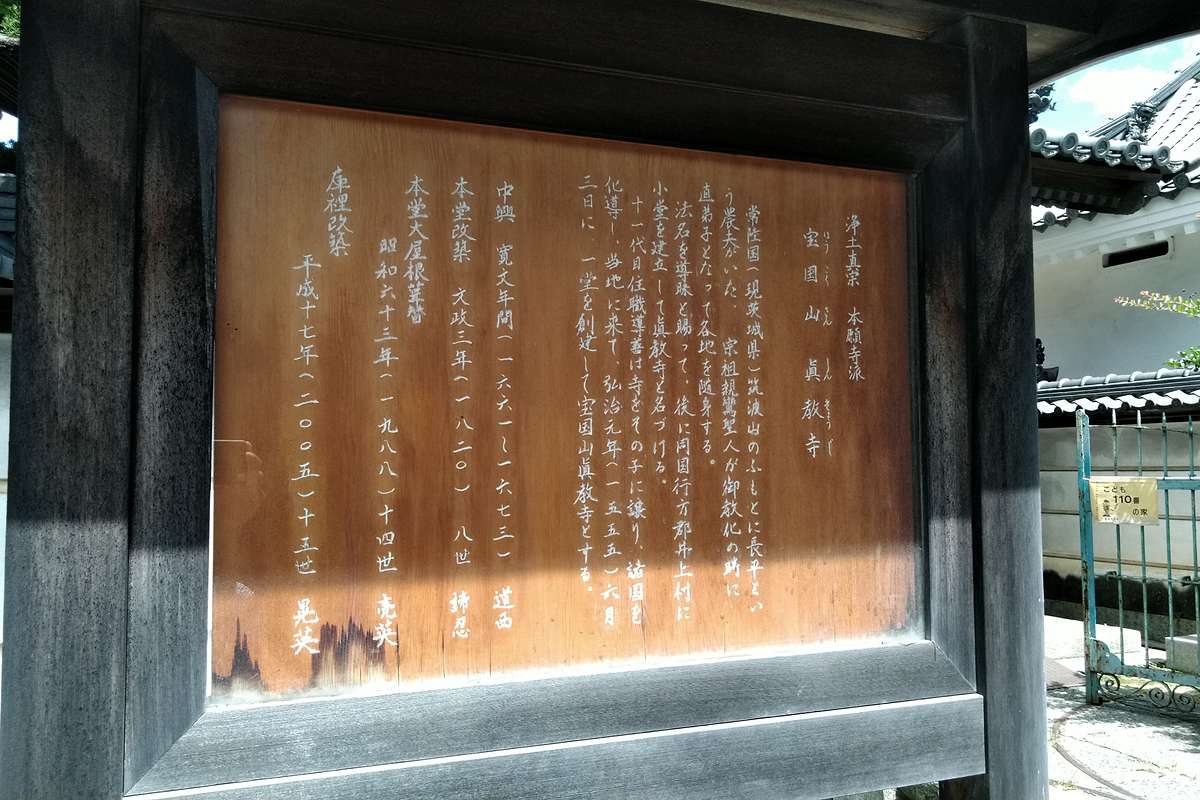 浄土真宗 本願寺派
ほうこくざん しんきょうじ
宝国山 眞教寺
常陸国(現茨城県)筑波山のふもとに長平とい
う農夫がいた。宗祖親鸞聖人が御教化の時に
直弟子となって各地を随身する。
法名を導珠と賜って、後に同国行方郡井上村に
小堂を建立して眞教寺と名づける。
十一代目住職導善は寺をその子に譲り、諸国を
化導し、当地に来て弘治元年(一五五五)六月
三日に、一堂を創建して宝国山眞教寺とする。
中興 寛文年間(一六六一〜一六七三) 道西
本堂改築 文政三年(一八二〇) 八世 諦忍
本堂大屋根葺替
昭和六十三年(一九八八)十四世 亮英
庫裡改築
平成十七年(二〇〇五)十五世 晃英
こども
110番
の家